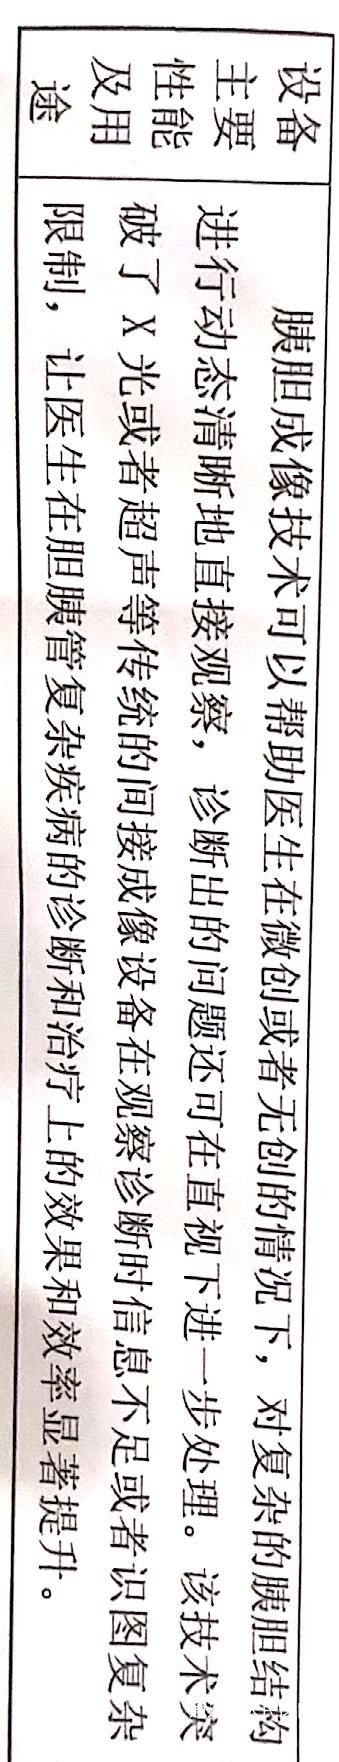 设备
主要
性能
及用
途
胰胆成像技术可以帮助医生在微创或者无创的情况下，对复杂的胰胆结构
进行动态清晰地直接观察，诊断出的问题还可在直视下进一步处理。该技术突
破了 X 光或者超声等传统的间接成像设备在观察诊断时信息不足或者识图复杂
限制，让医生在胆胰管复杂疾病的诊断和治疗上的效果和效率显著提升。